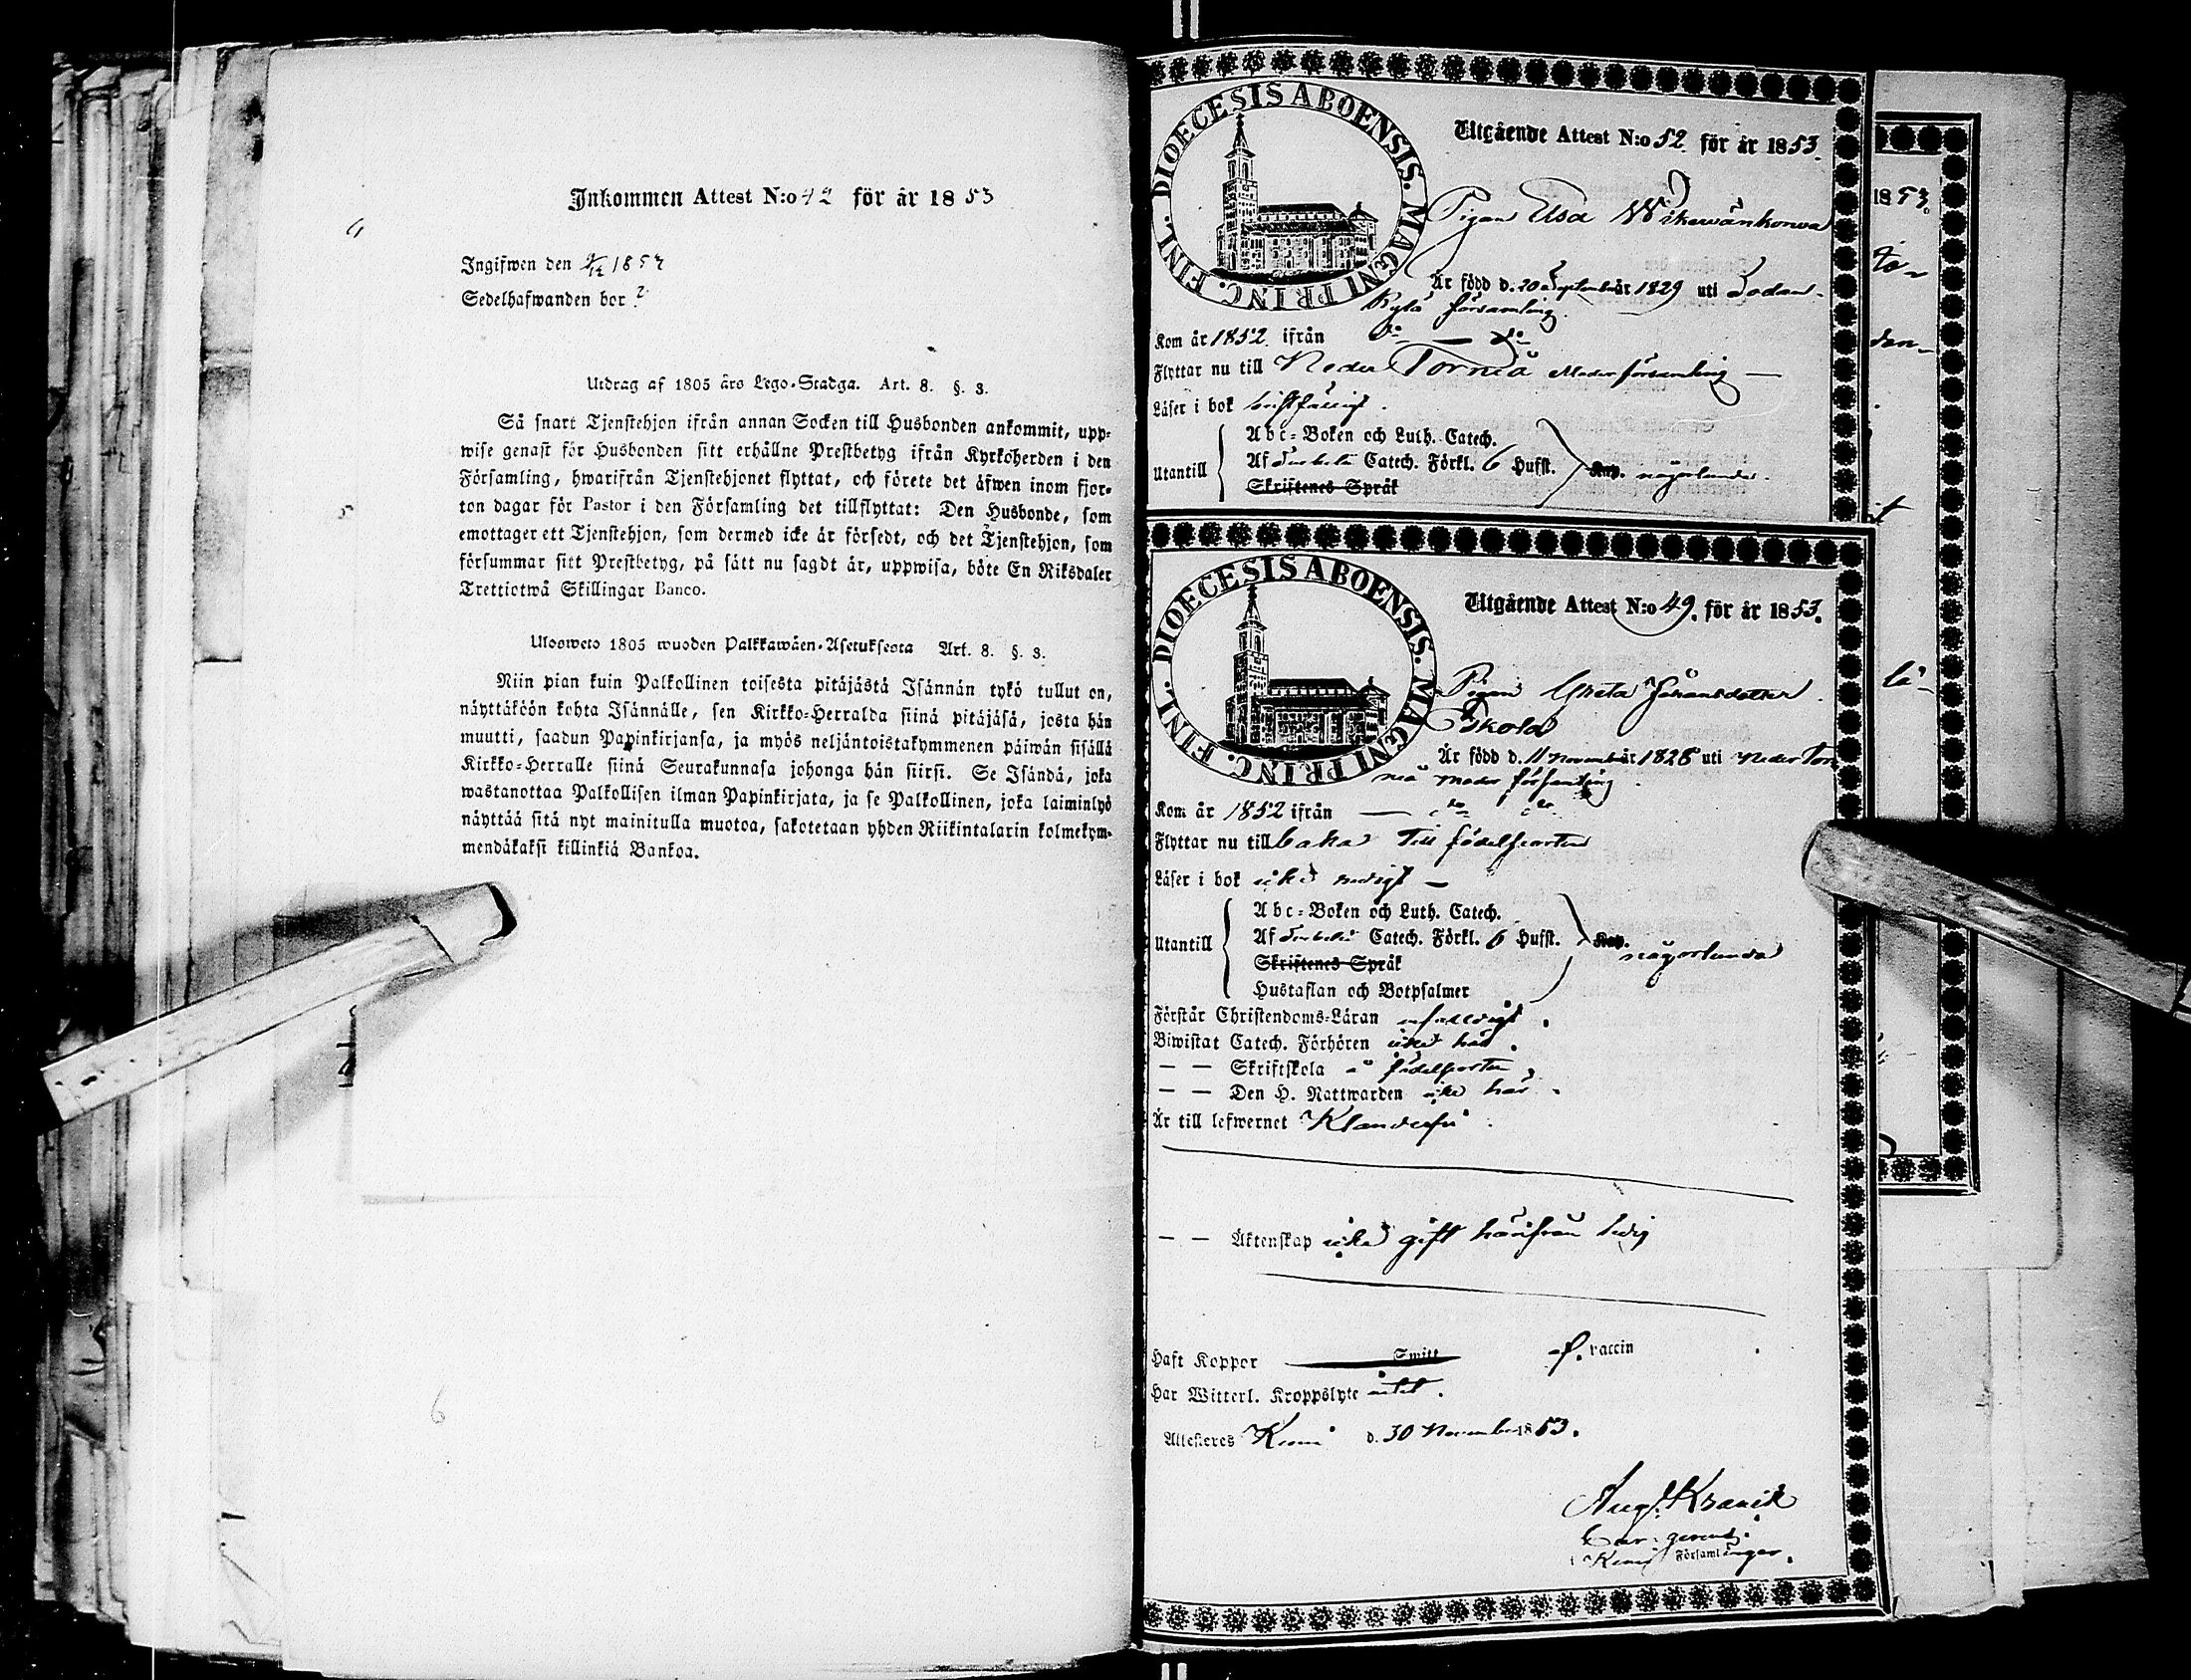 Inkommen Attest N:o 42 för år 1853
Ingifwen den 4/12 1853
Sedelhafwanden bor
Utdrag af 1805 års Lego-Stadga. Art. 8. §. 3.
Så snart Tjenstehjon ifrån annan Socken till Husbonden ankommit, upp-
wise genast för Husbonden sitt erhållne Prestbetyg ifrån Kyrkoherden i den
Församling, hwarifrån Tjenstehjonet flyttat, och förete det äfwen inom fjor-
ton dagar för Pastor i den Församling det tillflyttat: Den Husbonde, som
emottager ett Tjenstehjon, som dermed icke är försedt, och det Tjenstehjon, som
försummar sitt Prestbetyg, på sätt nu sagdt är, uppwisa, böte En Riksdaler
Trettiotwå Skillingar Banco.
Ulosweto 1805 wuoden Palkkawäen-Asetuksesta Art. 8. §. 3.
Niin pian kuin Palkollinen toisesta pitäjästä Isännän tykö tullut on,
näyttäköön kohta Isännälle, sen Kirkko-Herralda siinä pitäjäsä, josta hän
muutti, saadun Papinkirjansa, ja myös neljäntoistakymmenen päiwän sisällä
Kirkko-Herralle siinä Seurakunnasa johonga hän siirsi. Se Isändä, joka
wastanottaa Palkollisen ilman Papinkirjata, ja se Palkollinen, joka laiminlyö
näyttää sitä nyt mainitulla muotoa, sakotetaan yhden Riikintalarin kolmekym-
mendäkaksi killinkiä Bankoa.
DIOECESIS ABOENSIS. MAGNI PRINC. FINL.
Utgående Attest N:o 52 för år 1853.
Pigan Elsa
Är född d. 20 September år 1829 uti Sodan-
kylä församling.
Kom år 1852 ifrån do — do
Flyttar nu till Neder Torneå Moderförsamling —
Läser i bok bristfälligt.
Abc-Boken och Luth. Catech.
Utantill Af Catech. Förkl. 6 Hufst. Kap. någorlunda.
Skriftenes Språk
DIOECESIS ABOENSIS. MAGNI PRINC. FINL.
Utgående Attest N:o 49. för år 1853.
Pigan Greta Johansdotter
Är född d. 11 November år 1828 uti Neder Tor-
neå moder församling.
Kom år 1852 ifrån — do do
Flyttar nu till baka till födelseorten
Läser i bok icke redigt —
Abc-Boken och Luth. Catech.
Utantill Af Catech. Förkl. 6 Hufst. Kap. någorlunda
Skriftenes Språk
Hustaflan och Botpsalmer
Förstår Christendoms-Läran enfaldigt.
Biwistat Catech. Förhören icke här.
— — Skriftskola å födelseorten,
— — Den H. Nattwarden icke här.
Är till lefwernet Klanderfri.
— — Äktenskap icke gift härifrån ledig
Haft Koppor Switt f. vaccin
Har Witterl. Kroppslyte intet.
Attesteres Kemi d. 30 November 1853.
Aug. Kranck
Kemi Församlingar.
1853.